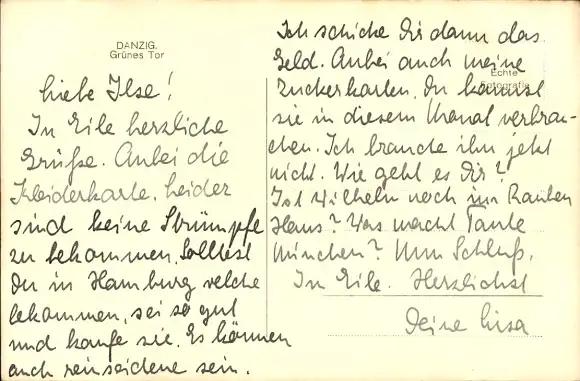 DANZIG.
Grünes Tor
Liebe Ilse!
In Eile herzliche
Grüße. Anbei die
Kleiderkarte, leider
sind keine Strümpfe
zu bekommen. Solltest
Du in Hamburg welche
bekommen, sei so gut
und kaufe sie. Es können
auch reinseidene sein.
Ich schicke Dir dann das
Geld. Anbei auch meine
Echte
Fotografie
Zuckerkarten. Du kannst
sie in diesem Monat verbrau-
chen. Ich brauche ihn jetzt
nicht. Wie geht es Dir?
Ist Wilhelm noch im Rauhen
Haus? Was macht Tante
München? Nun Schluß.
In Eile. Herzlichst
Deine Lisa